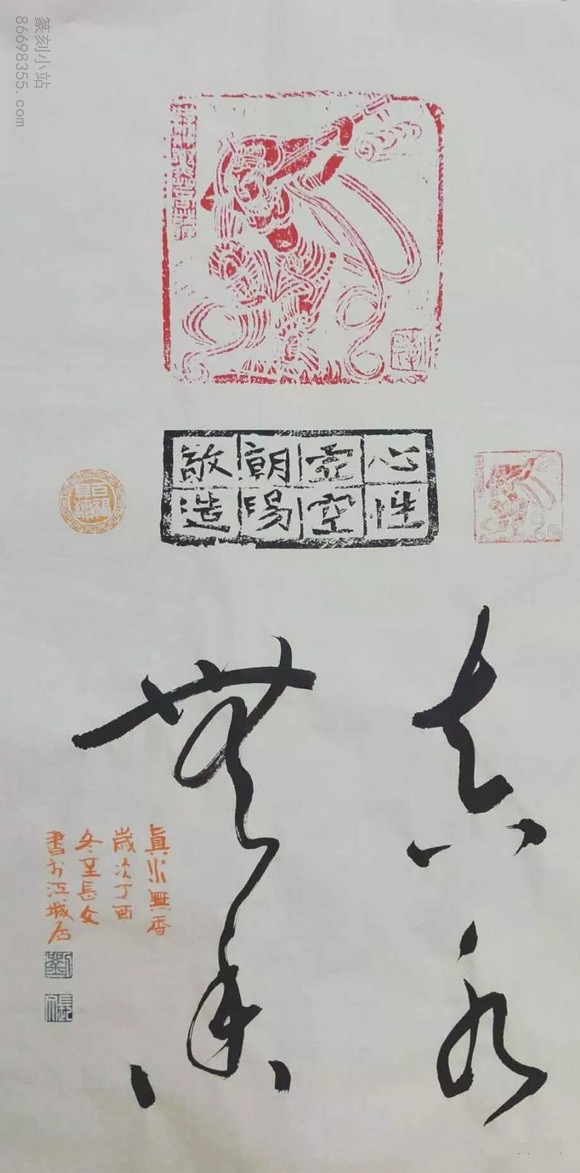 篆刻小站
86698355.com
心性
空
朝陽
敬造
真水
無香
眞水無香
歲次丁酉
冬至長文
書於江城居